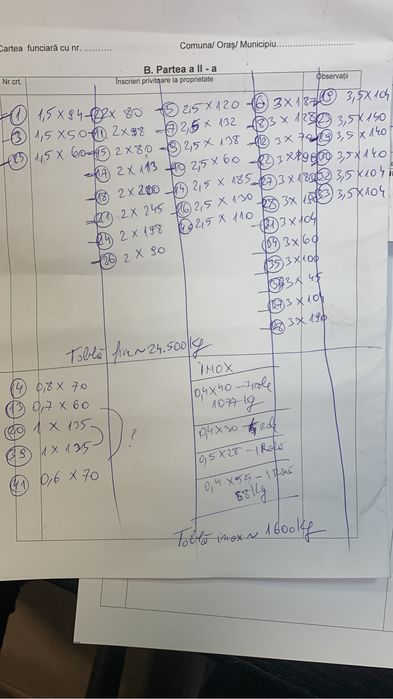 Cartea funciară cu nr. ..........
Comuna/ Oraș/ Municipiu............................
B. Partea a II - a
Nr.crt.
Înscrieri privitoare la proprietate
Observații
1 1,5 x 94
3 1,5 x 50
1,5 x 60
2 x 80
11 2 x 98
15 2 x 80
17 2 x 113
18 2 x 200
21 2 x 245
24 2 x 198
26 2 x 90
5 2,5 x 120
7 2,5 x 132
9 2,5 x 138
10 2,5 x 60
14 2,5 x 185
16 2,5 x 130
2,5 x 110
6 3 x 187
8 3 x 128
12 3 x 70
22 3 x 195
27 3 x 180
28 3 x
31 3 x 104
34 3 x 60
35 3 x 100
36 3 x 45
37 3 x 10
38 3 x 190
19 3,5 x 104
23 3,5 x 140
29 3,5 x 140
30 3,5 x 140
32 3,5 x 104
33 3,5 x 104
Tablă ~ 24.500 Kg
4 0,8 x 70
13 0,7 x 60
20 1 x 135
39 1 x 135
?
41 0,6 x 70
INOX
0,4 x 40 - 7 role
1077 Kg
0,4 x 30 -
0,5 x 28 - 1 Rolă
0,4 x 55 - 1 Rolă
88 Kg
Tablă inox ~ 1600 Kg